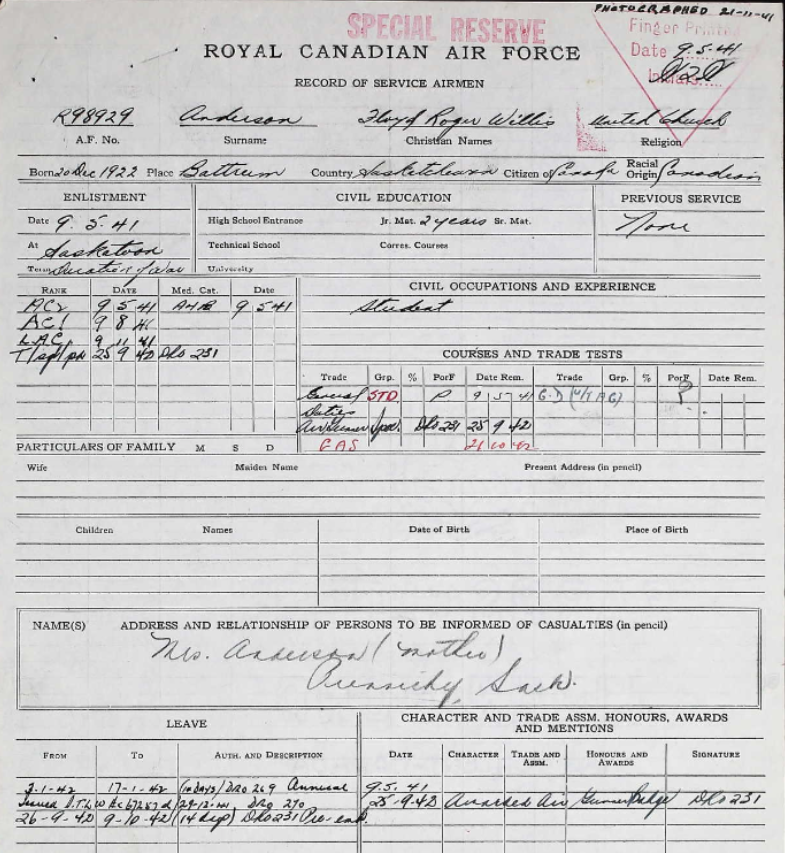 PHOTOGRAPHED 21-11-41
SPECIAL RESERVE
Finger Printed
Date 9.5.41
Initials
ROYAL CANADIAN AIR FORCE
RECORD OF SERVICE AIRMEN
R98929 Anderson Floyd Roger Willis United Church
A.F. No. Surname Christian Names Religion
Born 20 Dec 1922 Place Battrum Country Saskatchewan Citizen of Canada Racial Origin Canadian
ENLISTMENT CIVIL EDUCATION PREVIOUS SERVICE
Date 9.5.41 High School Entrance Jr. Mat. 2 years Sr. Mat. None
At Saskatoon Technical School Corres. Courses
Term Duration of War University
RANK DATE Med. Cat. Date CIVIL OCCUPATIONS AND EXPERIENCE
AC2 9 5 41 A4B 9 5 41 Student
AC1 9 8 41
LAC 9 11 41
T/Sgt/pd 25 9 42 DRO 231 COURSES AND TRADE TESTS
Trade Grp. % PorF Date Rem. Trade Grp. % PorF Date Rem.
General STD P 9 5 41 G.D
Duties
Air Gunner DRO 231 25 9 42
PARTICULARS OF FAMILY M S D GAS 21 10 42
Wife Maiden Name Present Address (in pencil)
Children Names Date of Birth Place of Birth
NAME(S) ADDRESS AND RELATIONSHIP OF PERSONS TO BE INFORMED OF CASUALTIES (in pencil)
Mrs. Anderson (mother)
Pennichy, Sask.
LEAVE CHARACTER AND TRADE ASSM. HONOURS, AWARDS AND MENTIONS
FROM TO AUTH. AND DESCRIPTION DATE CHARACTER TRADE AND ASSM. HONOURS AND AWARDS SIGNATURE
3-1-42 17-1-42 (14 DAYS) DRO 269 Annual 9.5.41
Issued 29-12-41, DRO 270 25-9-42 Awarded Air Gunner Badge DRO 231
26-9-42 9-10-42 (14 days) DRO 231 Pre-emb.